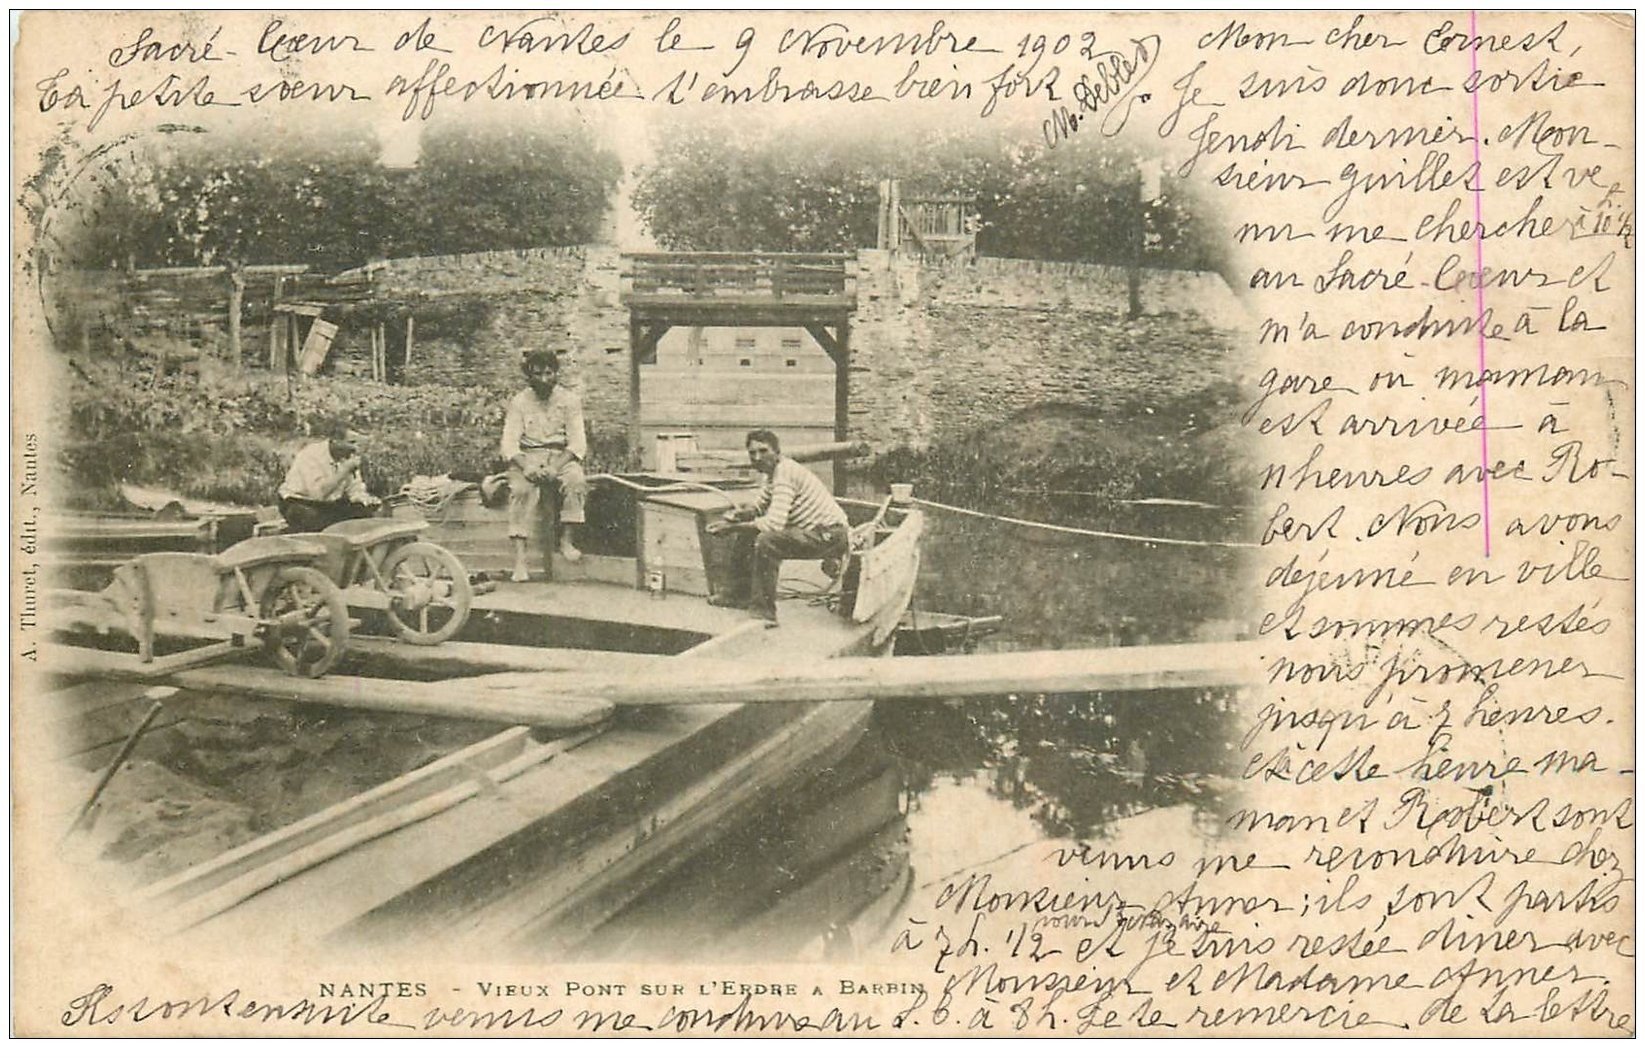 Sacré-Cœur de Nantes le 9 Novembre 1902
Ta petite sœur affectionnée t'embrasse bien fort
M. Debled
Mon cher Ernest,
Je suis donc sortie
Jeudi dernier. Mon-
sieur Guillet est ve
nu me chercher à 10h 1/2
au Sacré-Cœur et
m'a conduite à la
gare où maman
est arrivée à
11 heures avec Ro-
bert. Nous avons
déjeuné en ville
et sommes restés
nous promener
jusqu'à 7 heures.
et à cette heure ma-
man et Robert sont
venus me reconduire chez
Monsieur Anner; ils sont partis
à 7h. 1/2 pour et je suis restée diner avec
Monsieur et Madame Anner.
Ils sont ensuite venus me conduire au S. C. à 8h. Je te remercie de ta lettre
NANTES - VIEUX PONT SUR L'ERDRE A BARBIN
A. Thuret, édit., Nantes